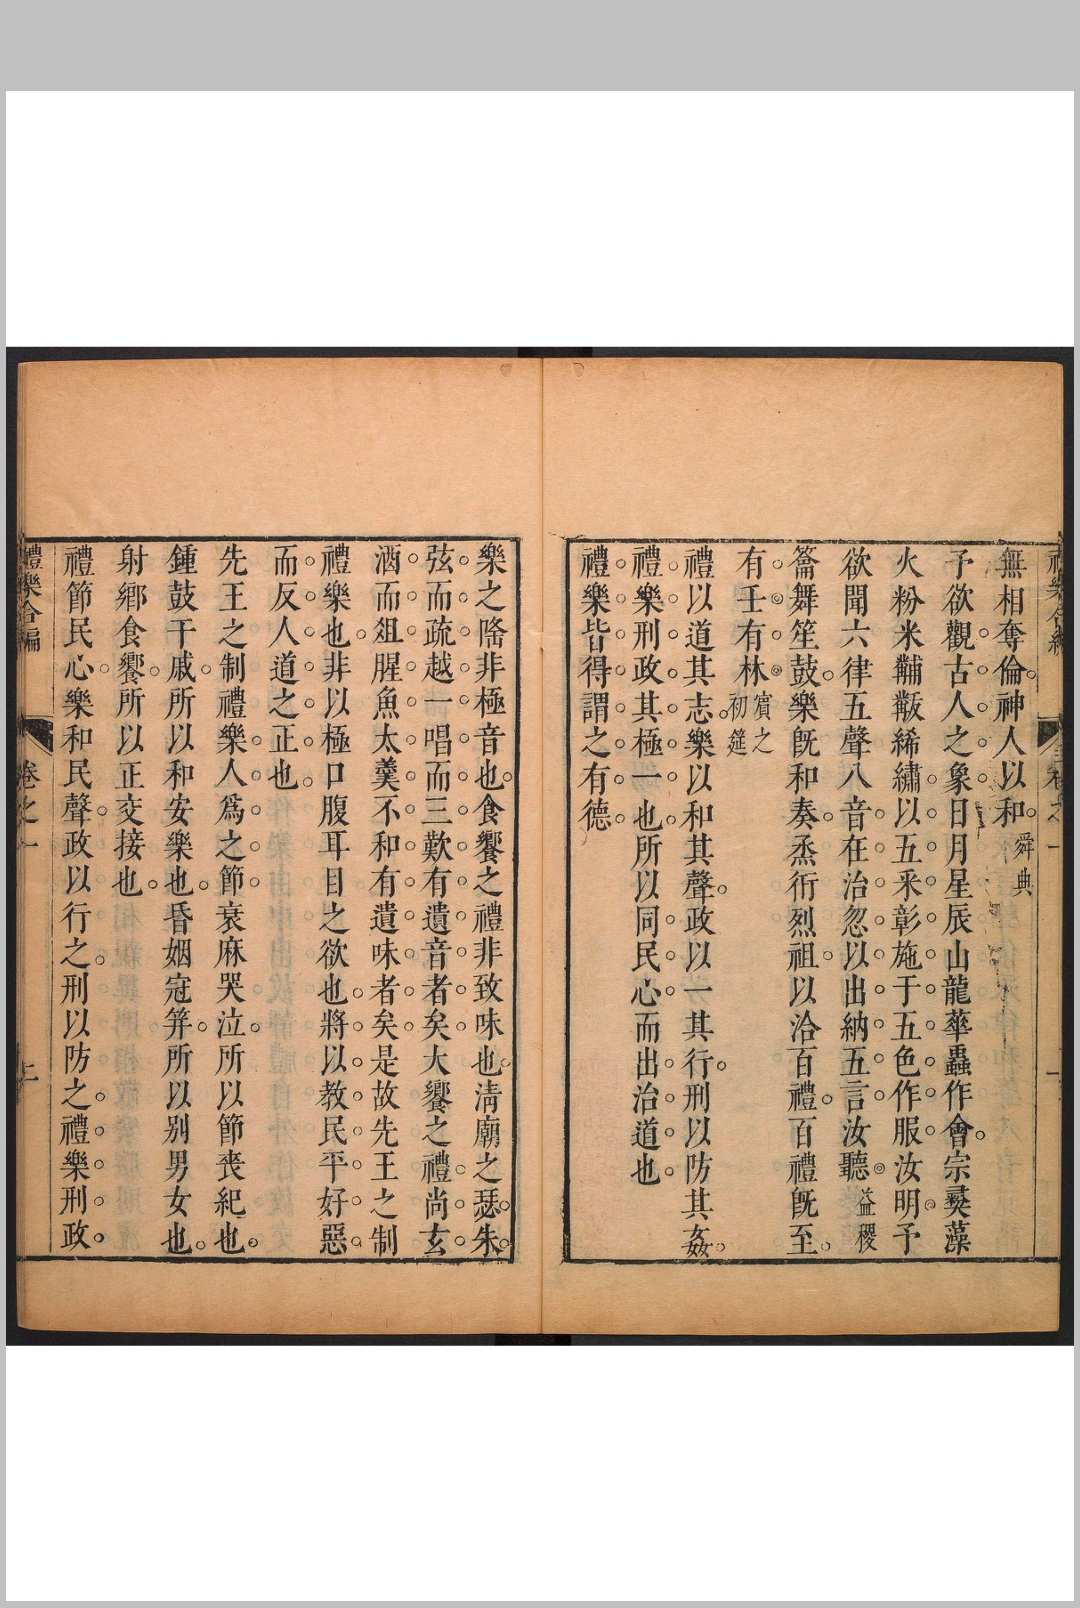 無相奪倫神人以和舜典
予欲觀古人之象日月星辰山龍華蟲作會宗彛藻
火粉米黼黻絺繡以五采彰施于五色作服汝明予
欲聞六律五聲八音在治忽以出納五言汝聽益稷
籥舞笙鼓樂旣和奏烝衎烈祖以洽百禮百禮旣至
有壬有林賔之初筵
禮以道其志樂以和其聲政以一其行刑以防其姦
禮樂刑政其極一也所以同民心而出治道也
禮樂皆得謂之有德
樂之隆非極音也食饗之禮非致味也淸廟之瑟朱
弦而疏越一唱而三歎有遺音者矣大饗之禮尚玄
酒而俎腥魚太羹不和有遺味者矣是故先王之制
禮樂也非以極口腹耳目之欲也將以教民平好惡
而反人道之正也
先王之制禮樂人爲之節衰麻哭泣所以節喪紀也
鍾鼓干戚所以和安樂也昏姻冠筓所以别男女也
射鄉食饗所以正交接也
禮節民心樂和民聲政以行之刑以防之禮樂刑政
禮樂合編
卷之一